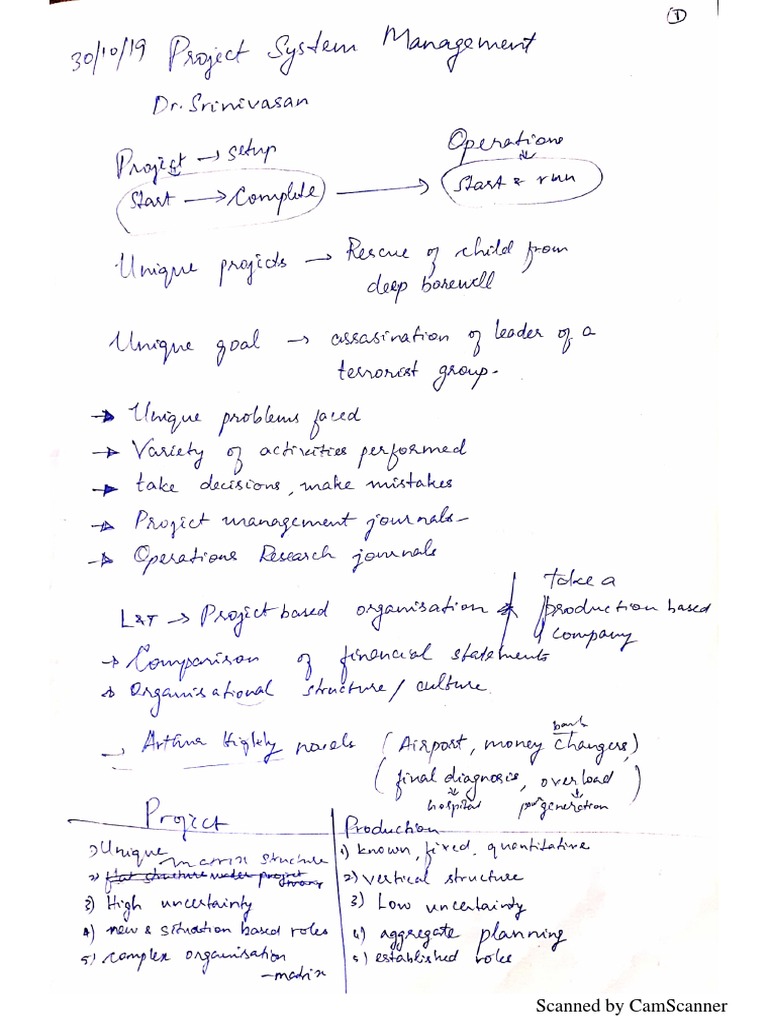 ①
30/10/19 Project System Management
Dr. Srinivasan
Project → setup
Operations
Start → Complete → Start & run
Unique projects → Rescue of child from
deep borewell
Unique goal → assasination of leader of a
terrorist group.
→ Unique problems faced
→ Variety of activities performed
→ take decisions, make mistakes
→ Project management journals
→ Operations Research journals
L&T → Project based organisation
take a
production based
company
→ Comparison of financial statements
→ Organisational structure / culture
→ Arthur novels (Airport, money changers)
bank
(final diagnosis, overload)
hospital generation
Project
Production
1) Unique
1) known, fixed, quantitative
matrix structure
2) flat structure under project
2) vertical structure
3) High uncertainty
3) Low uncertainty
4) new & situation based roles
4) aggregate planning
5) complex organisation
- matrix
5) established roles
Scanned by CamScanner